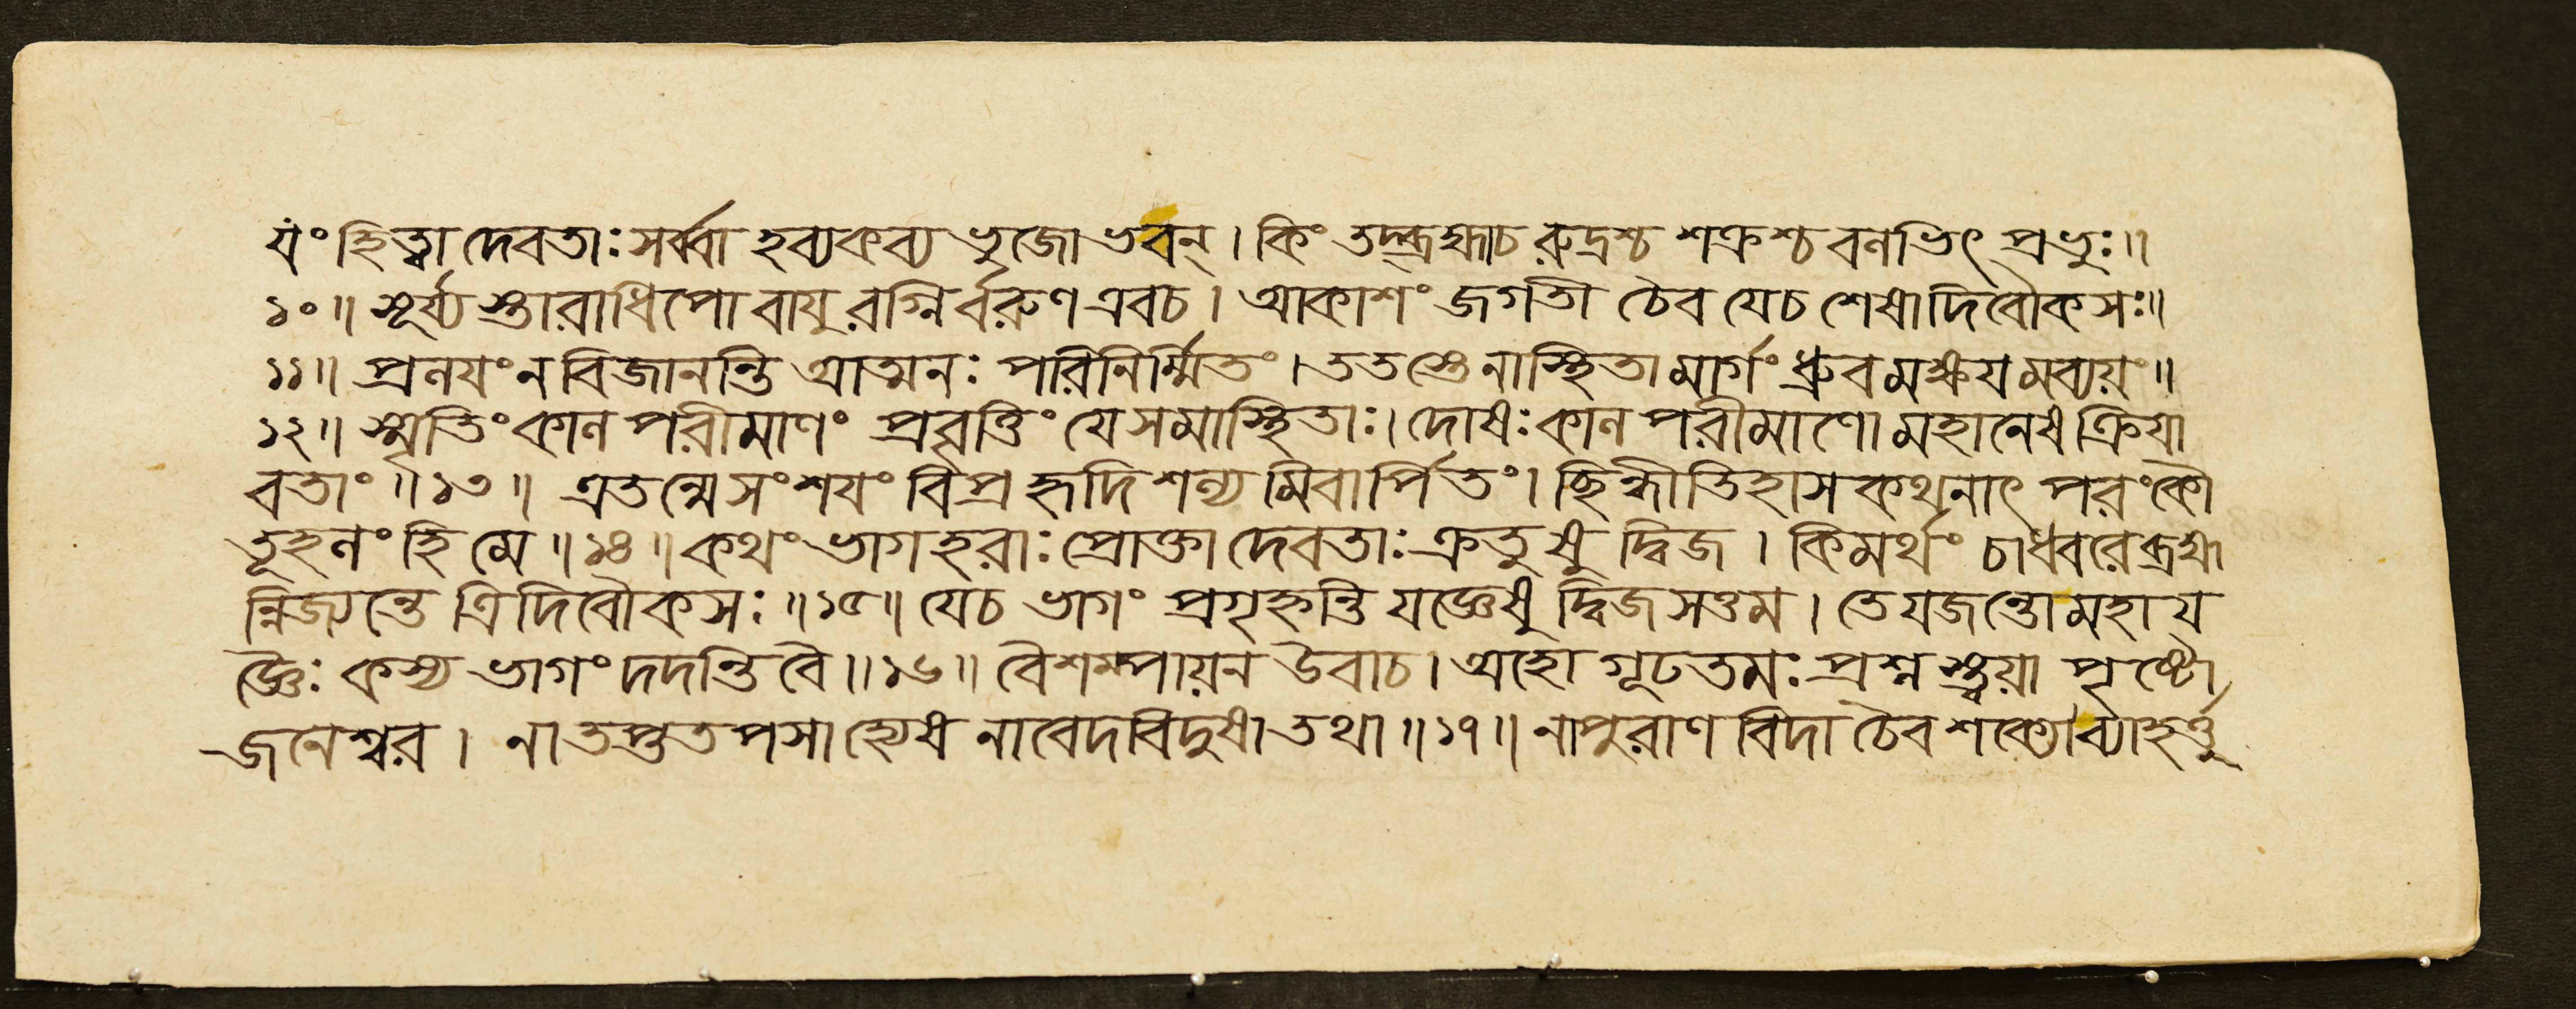 যং হিত্বা দেবতাঃ সর্ব্বা হব্যকব্য ভুজো ভবন্। কিং তদ্ব্রহ্মাচ রুদ্রশ্চ শক্রশ্চ বলভিৎ প্রভুঃ॥
১০॥ সূর্য্য স্তারাধিপো বায়ু রগ্নির্বরুণ এবচ। আকাশং জগতী চৈব যেচ শেষা দিবৌকসঃ॥
১১॥ প্রলয়ং ন বিজানন্তি আত্মনঃ পরিনির্ম্মিতং। ততস্তে নাস্থিতা মার্গং ধ্রুব মক্ষয় মব্যয়ং॥
১২॥ স্মৃতিং কাল পরীমাণং প্রবৃত্তিং যে সমাস্থিতাঃ। দোষঃ কাল পরীমাণো মহানেষ ক্রিয়া
বতাং॥১৩॥ এতন্মে সংশয়ং বিপ্র হৃদি শল্য মিবার্পিতং। ছিন্ধীতিহাস কথনাৎ পরং কৌ
তূহলং হি মে॥১৪॥ কথং ভাগ হরাঃ প্রোক্তা দেবতাঃ ক্রতুষু দ্বিজ। কিমর্থং চাধ্বরে ব্রহ্ম
ন্নিজ্যন্তে ত্রিদিবৌকসঃ॥১৫॥ যেচ ভাগং প্রগৃহ্নন্তি যজ্ঞেষু দ্বিজসত্তম। তে যজন্তো মহা য
জ্ঞৈঃ কস্য ভাগং দদন্তি বৈ॥১৬॥ বৈশম্পায়ন উবাচ। অহো গূঢতমঃ প্রশ্ন স্ত্বয়া পৃষ্টো
জনেশ্বর। নাতপ্ততপসা হ্যেষ নাবেদবিদুষা তথা॥১৭॥ নাপুরাণ বিদা চৈব শক্যো ব্যাহর্ত্তু